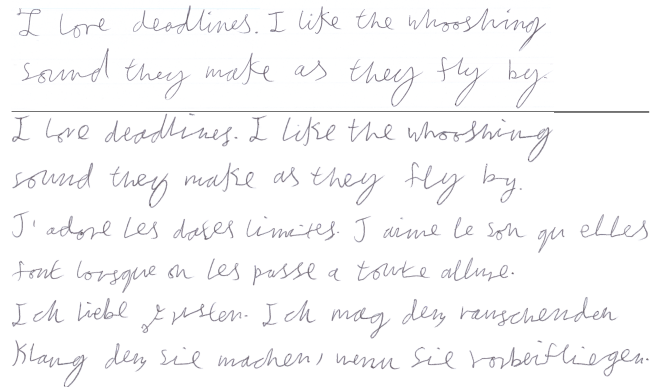 I love deadlines. I like the whooshing
sound they make as they fly by.
I love deadlines. I like the whooshing
sound they make as they fly by.
J'adore les dates limites. J aime le son qu elles
font lorsque on les passe a toute allure.
Ich liebe Fristen. Ich mag den rauschenden
Klang den sie machen, wenn sie vorbeifliegen.